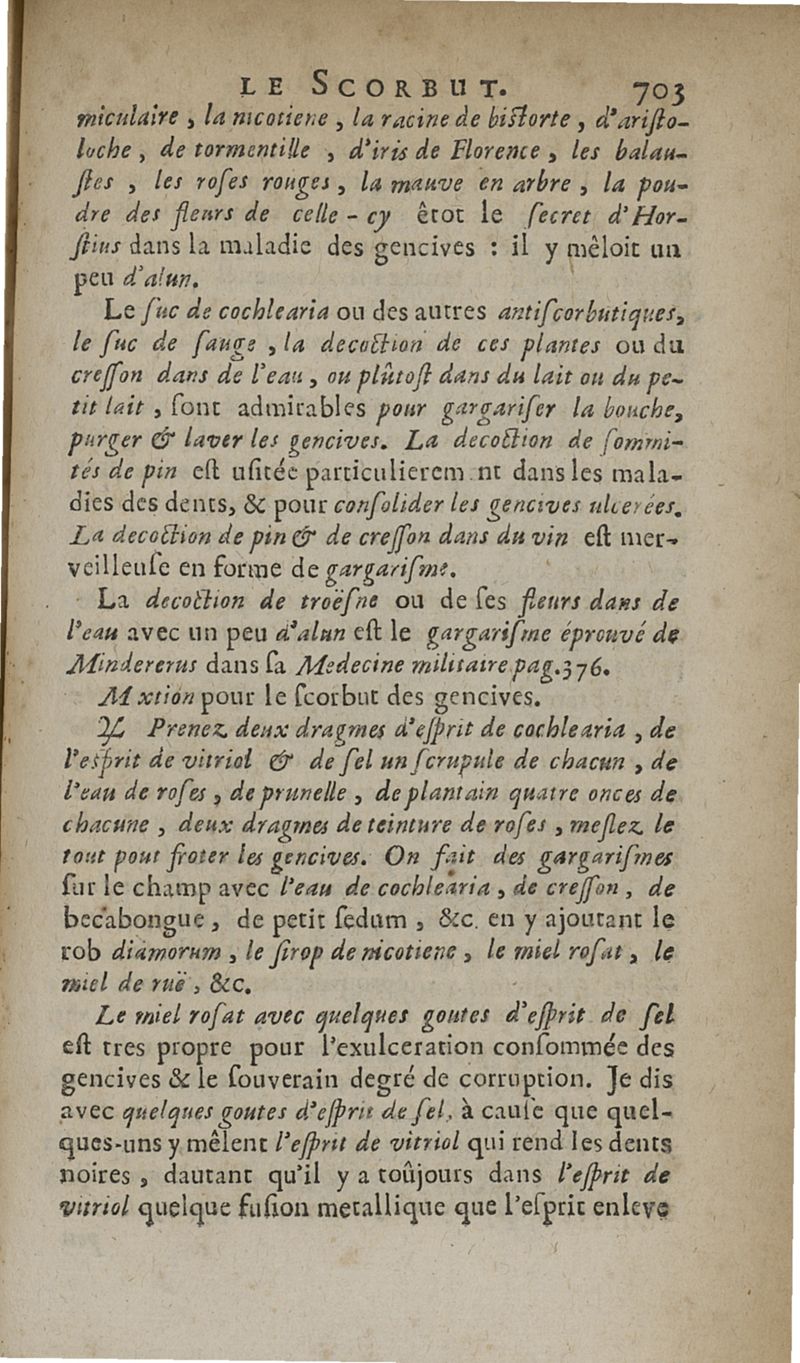 LE SCORBUT. 703
miculaire, la nicotiene, la racine de bistorte, d'aristo-
loche, de tormentille, d'iris de Florence, les balau-
stes, les roses rouges, la mauve en arbre, la pou-
dre des fleurs de celle-cy êtot le secret d'Hor-
stius dans la maladie des gencives : il y mêloit un
peu d'alun.
Le suc de cochlearia ou des autres antiscorbutiques,
le suc de sauge, la decoction de ces plantes ou du
cresson dans de l'eau, ou plûtost dans du lait ou du pe-
tit lait, sont admirables pour gargariser la bouche,
purger & laver les gencives. La decoction de sommi-
tés de pin est usitée particulierem nt dans les mala-
dies des dents, & pour consolider les gencives ulcerées.
La decoction de pin & de cresson dans du vin est mer-
veilleuse en forme de gargarisme.
La decoction de troësne ou de ses fleurs dans de
l'eau avec un peu d'alun est le gargarisme éprouvé de
Mindererus dans sa Medecine militaire pag. 376.
M xtion pour le scorbut des gencives.
℞ Prenez deux dragmes d'esprit de cochlearia, de
l'esprit de vitriol & de sel un scrupule de chacun, de
l'eau de roses, de prunelle, de plantain quatre onces de
chacune, deux dragmes de teinture de roses, meslez le
tout pout froter les gencives. On fait des gargarismes
sur le champ avec l'eau de cochlearia, de cresson, de
becabongue, de petit sedum, &c. en y ajoutant le
rob diamorum, le sirop de nicotiene, le miel rosat, le
miel de ruë, &c.
Le miel rosat avec quelques goutes d'esprit de sel
est tres propre pour l'exulceration consommée des
gencives & le souverain degré de corruption. Je dis
avec quelques goutes d'esprit de sel, à cause que quel-
ques-uns y mêlent l'esprit de vitriol qui rend les dents
noires, dautant qu'il y a toûjours dans l'esprit de
vitriol quelque fusion metallique que l'esprit enleve